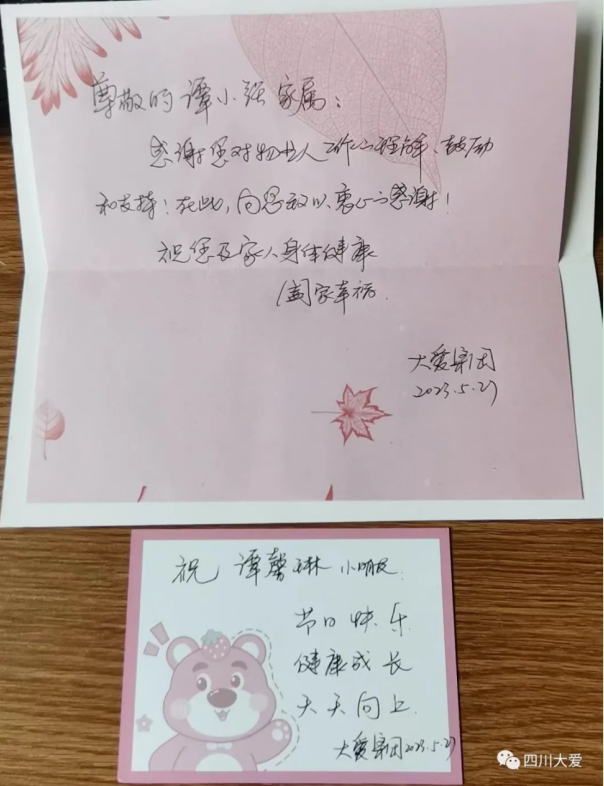 尊敬的谭小强家属：
感谢您对物业人工作的理解、鼓励
和支持！在此，向您致以衷心的感谢！
祝您及家人身体健康
阖家幸福.
大爱集团
2023.5.27
祝 谭馨琳 小朋友.
节日快乐
健康成长
天天向上.
大爱集团2023.5.27
四川大爱